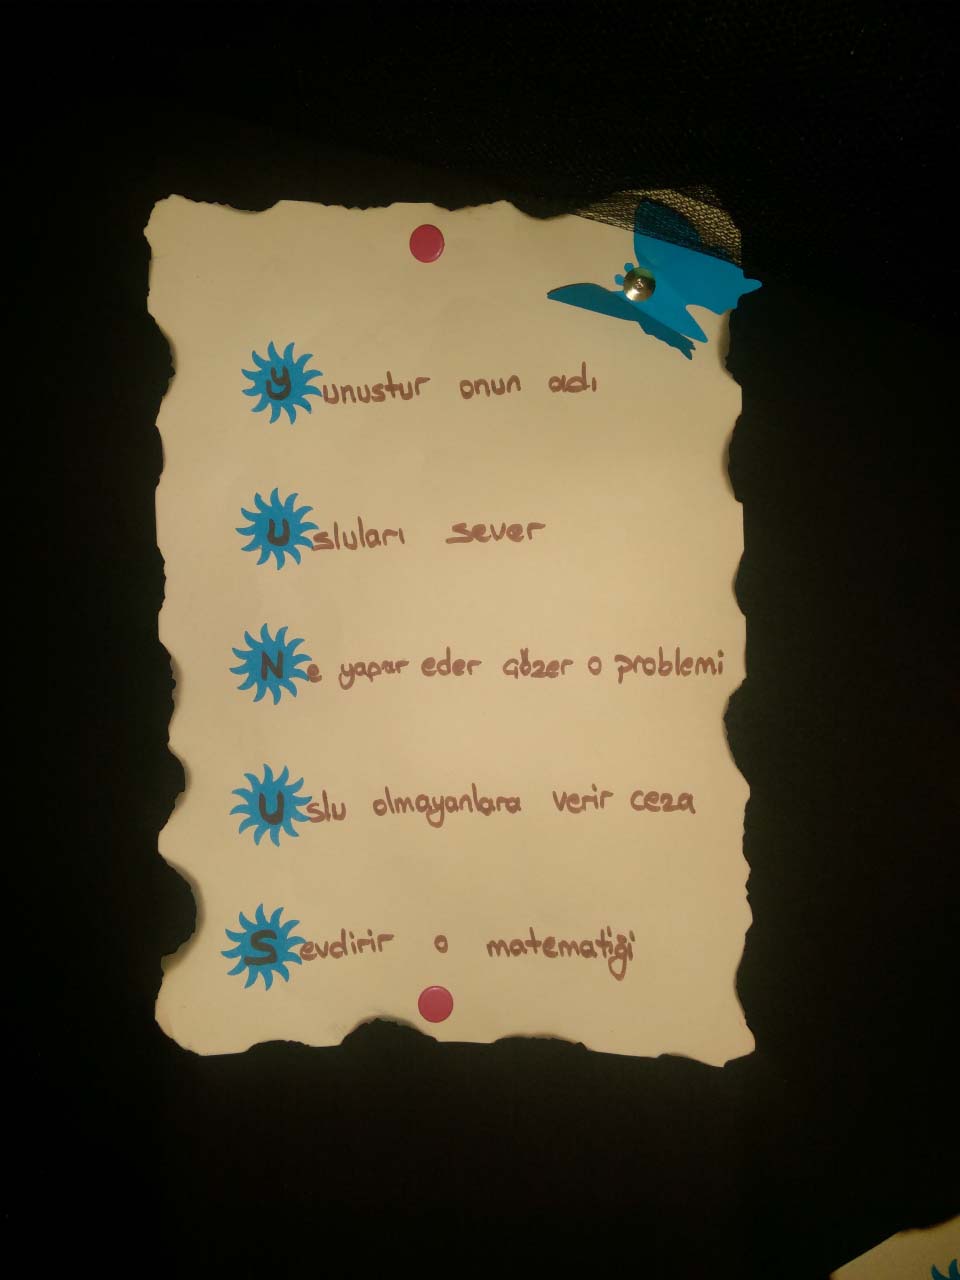 Yunustur onun adı
Usluları sever
Ne yapar eder çözer o problemi
Uslu olmayanlara verir ceza
Sevdirir o matematiği